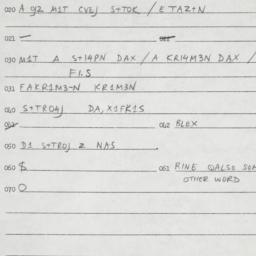 020 A gz M1T CVEJ S+TOK / E TAZ+N
021 —
030 M1T A S+14PN DAX / A KR14M3N DAX /
F1.S
031 FAKR1M3-N KR1M3N
040 S+TRO4J DA,X1FK1S
042 BLEX
050 D1 S+TROJ Z NAS .
060 $ 061 RINE QALSO SOM
OTHER WORD
070 O